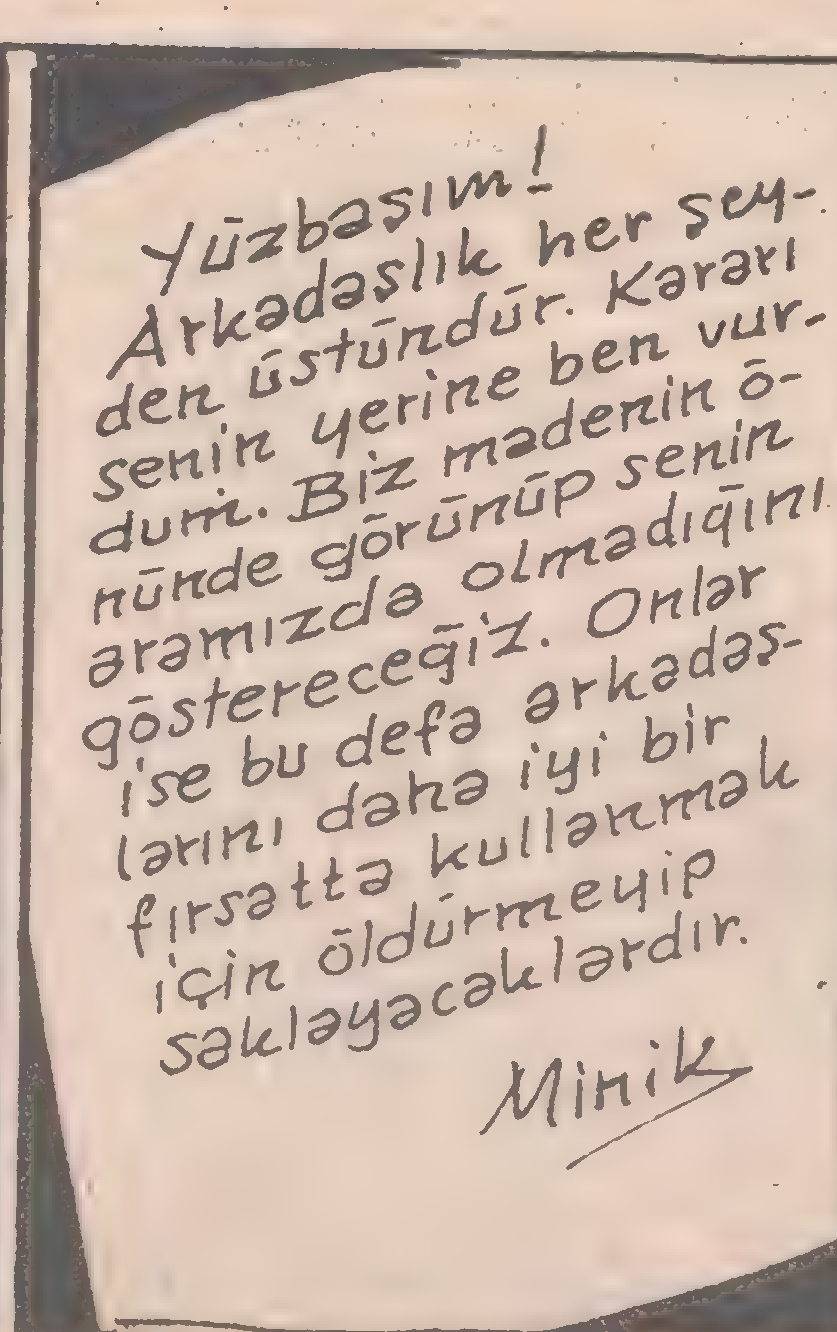 Yüzbaşım!
Arkadaşlık her şey-
den üstündür. Kararı
senin yerine ben vur-
dum. Biz madenin ö-
nünde görünüp senin
aramızda olmadığını
göstereceğiz. Onlar
ise bu defa arkadaş-
larını daha iyi bir
fırsatta kullanmak
için öldürmeyip
saklayacaklardır.
Minik